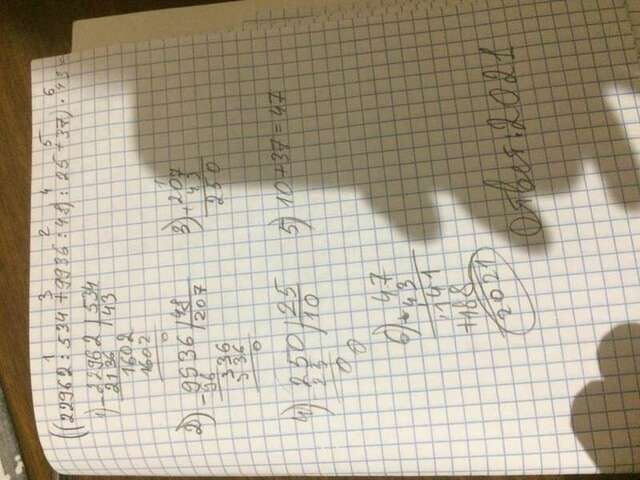 1 3 2 4 5 6
((22962:534+9936:48):25+37)·43=
1) 22962 | 534
- 2136 | 43
1602
1602
0
2) 9936 | 48
- 96 | 207
336
336
0
3) 1
207
+ 43
250
4) 250 | 25
25 | 10
0
0
5) 10+37=47
6) 47
· 43
141
+188
2021
Ответ: 2021